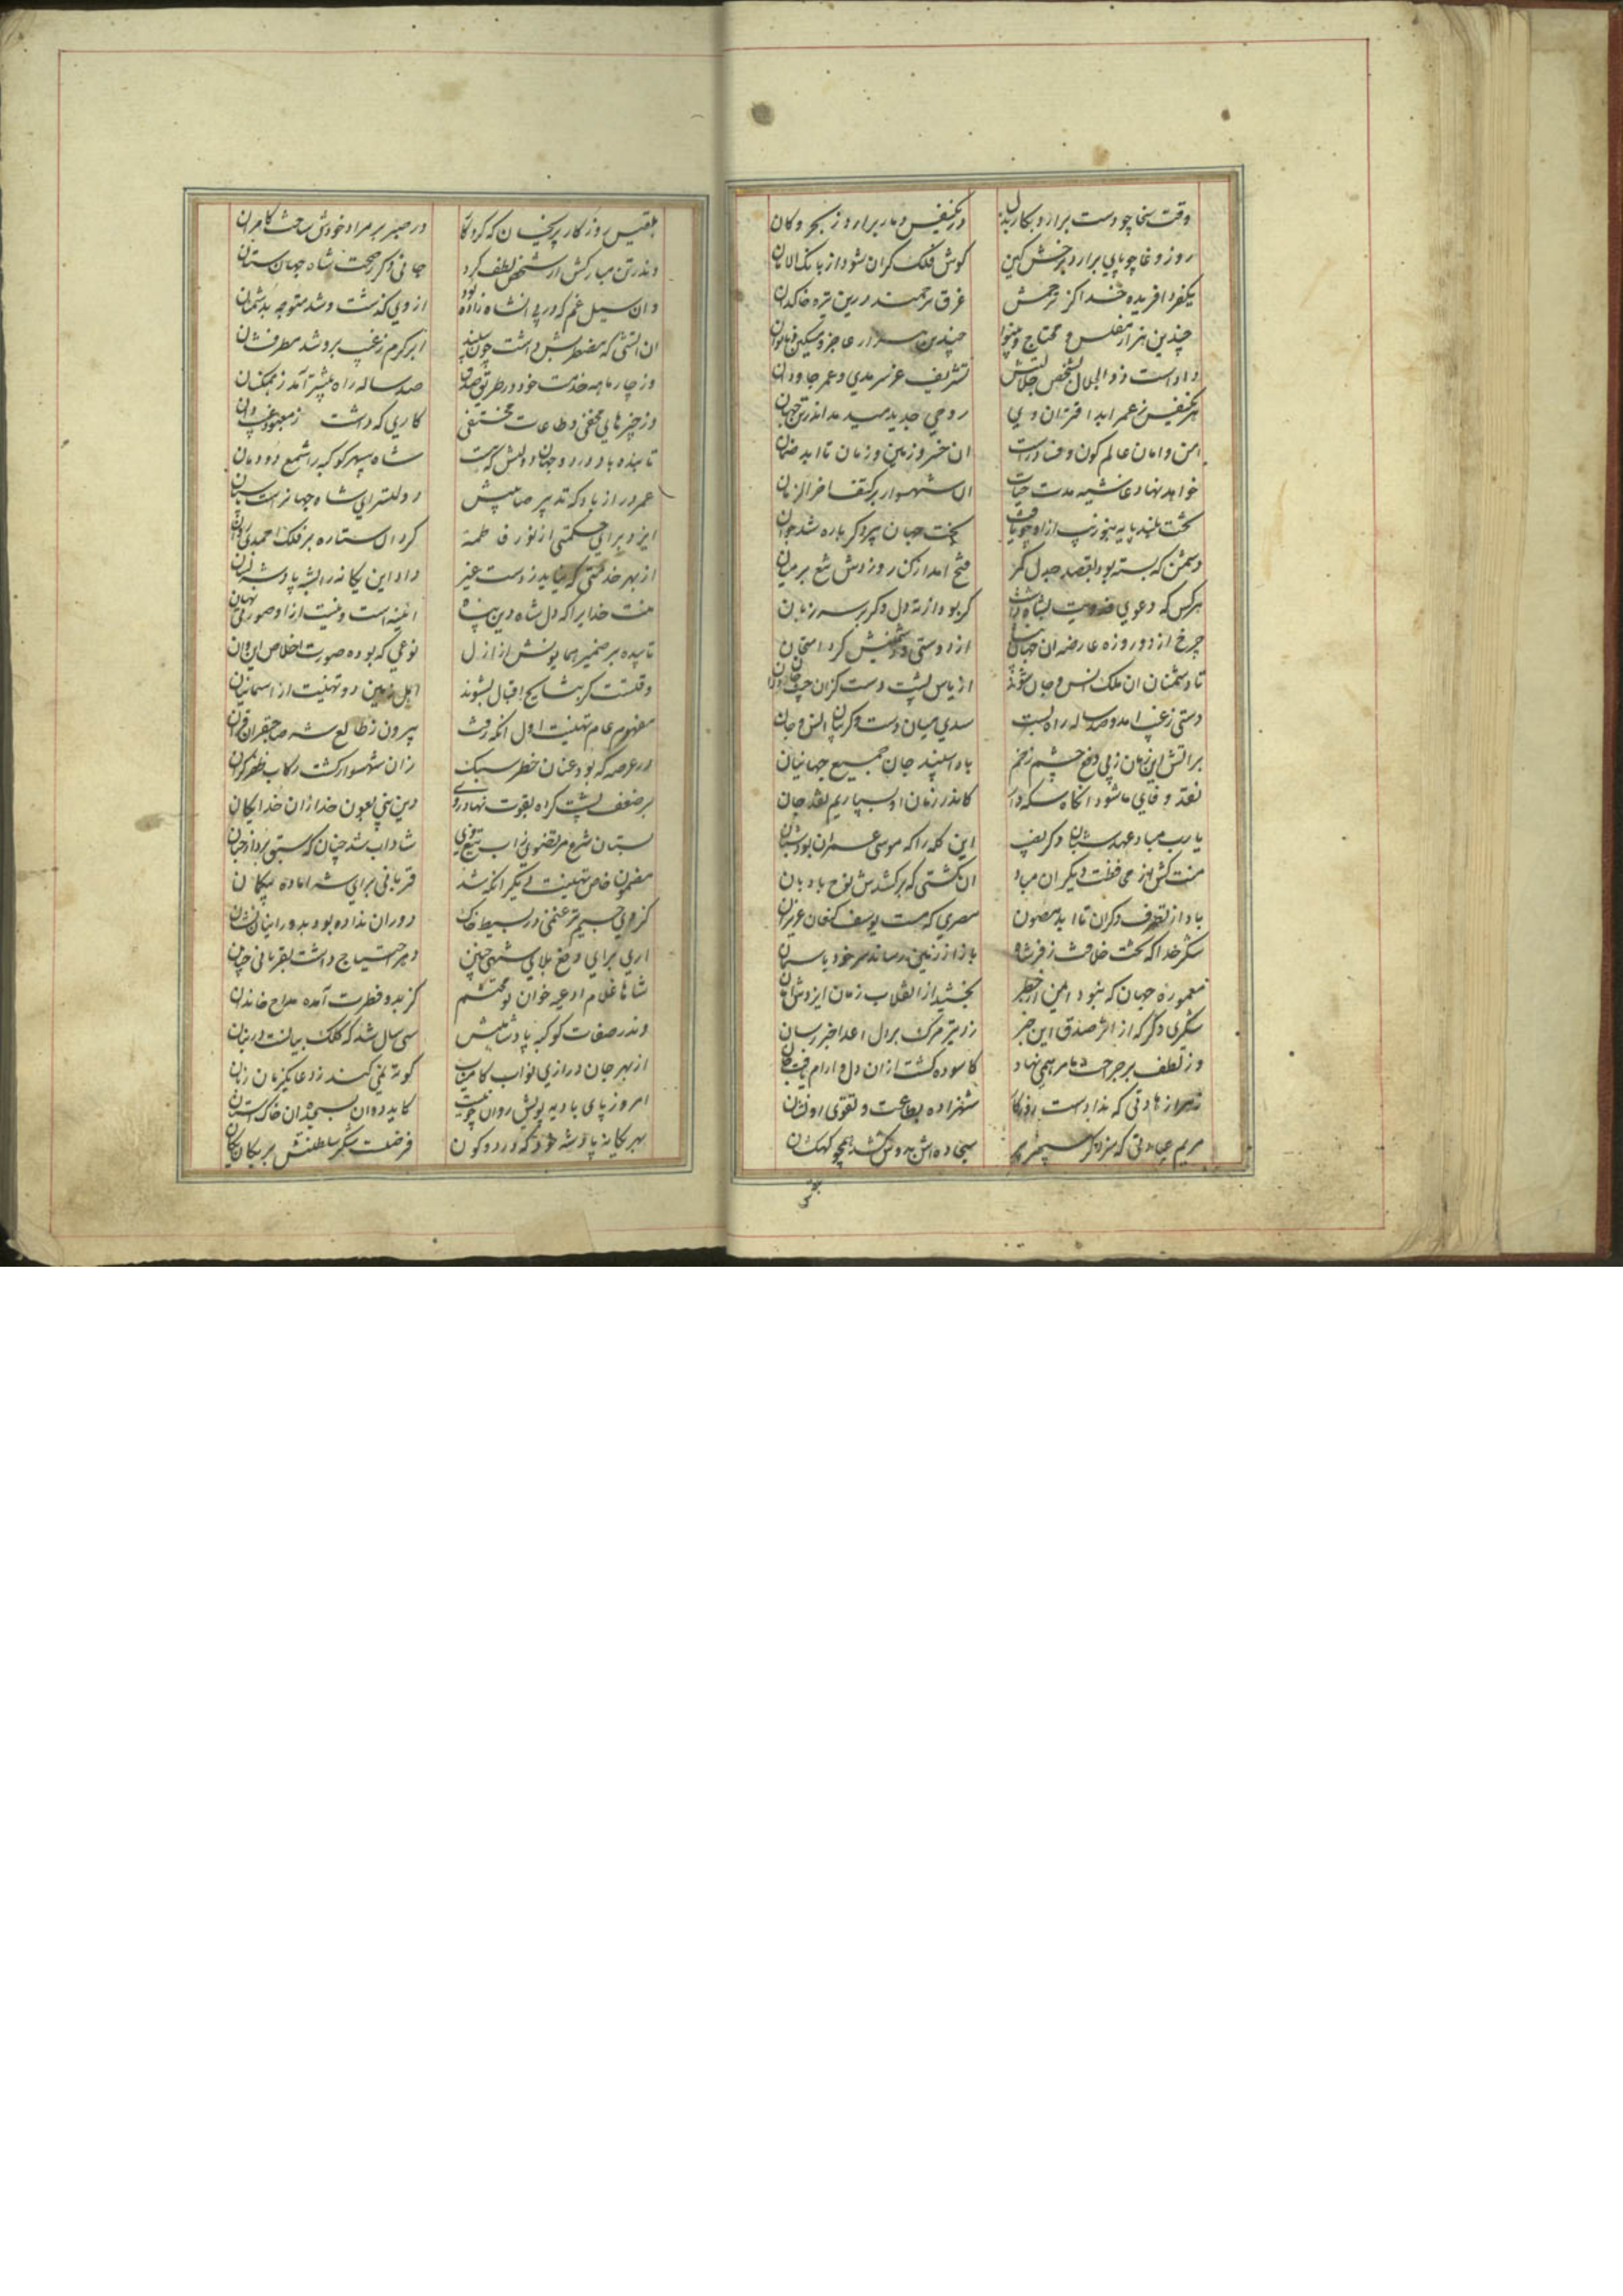 وقت سخا چو دست برارد بکار بذل در یکنفس دمار برارد ز بحر و کان
روز وغا چو پای برارد برخش کین کوش فلک کران شود از بانک الامان
یکفرد افریده خدا کز ترحمش غرق ترحمند درین تیره خاکدان
چندین هزار مفلس و محتاج و بینوا چندین هزار عاجز و مسکین و ناتوان
داداست ذوالجلال بشخص جلالتش تشریف عز سرمدی و عمر جاودان
هر یکنفس ز عمر ابد اقتران وی روحی جدید میدمد اندر تن جهان
امن و امان عالم کون و فسادراست ان خسرو زمین و زمان تا ابد ضمان
خواهد نهاد غاشیه مدت حیات ان شهسوار بر کتف اخر الزمان
تخت بلند پایه بجو زیب ازو چو یافت بخت جهان پیر دکر باره شد جوان
دشمن که بسته بود بقصد جدل کمر فتح امد از کن روز دش تیغ بر میان
هر کس که دعوی فدویت بشاه داشت کر بود از ته دل و کر بر سر زبان
چرخ از دو روزه عارضه ان جهان از دوستی و دشمنیش کرد امتحان
تا دشمنان ان ملک انس و جان شوند از یاس پشت دست کزان
دستی ز غیب امد و صد ساله راه بست سدی میان دست و کریبان انس و جان
بر اتش این زمان ز پی دفع چشم زخم باد اسپند جان جمیع جهانیان
نقد وفای ما شود انکاه سکه دار کاندر زمان او بسپاریم نقد جان
یا رب مباد عهد شبان دکر نصیب این کله را که موسی عمران بود شبان
منت کش از محافظت دیکران مباد ان کشتی که برکشدش نوح بادبان
باد از تصرف دکران تا ابد مصون مصری که هست یوسف کنعان عزیز ان
شکر خدا که تخت خلافت ز فر شاه باز از زمین رساند سر خود باسمان
معموره جهان که نبود ایمن از خطر بخشید از انقلاب زمان ایزدش امان
شکری دکر که از اثر صدق این خبر زد تیر مرک بر دل اعدا خبر رسان
وز لطف بر جراحت ما مرهمی نهاد کاسوده کشت ازان دل و ارام یافت جان
زهرا زهادتی که ندادست روزکار شهزاده بطاعت و تقوی ازو نشان
مریم عبادتی که سزد کر سپهر سجاده اش بدوش کشد همچو کهکشان
بلقیس
بلقیس روزکار پریخان که کردکار در صبر بر مراد خودش ساخت کامران
وندر تن مبارکش از شخص لطف کرد جانی دکر ز صحت شاه جهان ستان
وان سیل غم که در پی انشاه زاده بود از وی کذشت و شد متوجه بدشمنان
ان اتشی که مضطربش داشت چون سپند ابر کرم ز غیب برو شد مطر فشان
وز چار ماهه خدمت خود در طریق صدق صد ساله راه بیشتر آمد ز همکنان
وز خیرهای مخفی و طاعات مختفی کاری که داشت ز معبود غیب دان
تا بنده باد در دو جهان دولتش که هست شاه سپهر کوکبه را شمع دودمان
عمر دراز باد که تدبیر صایبش دولتسرای شاه جهانراست پاسبان
ایزد برای حکمتی از نور فاطمه کرد ان ستاره بر فلک احمدی عیان
از بهر خدمتی که نیاید ز دست غیر داد این یکانه را بشه پادشه نشان
منت خدایرا که دل شاه دین پناه ایینه است و نیست ازا و صورتی نهان
تابیده بر ضمیر همایونش از ازل نوعی که بوده صورت اخلاص این و ان
وقتست کز بشایح اقبال بشنوند اهل زمین دو تهنیت از اسمانیان
مفهوم عام تهنیت اول انکه رفت بیرون ز طالع شه صاحبقران قران
در عرصه که بود عنان خطر سبک زان شهسوار کشت رکاب ظفر کران
بر ضعف پشت کرده بقوت نهاد روی دین نبی بعون خدا زان خدایکان
بستان شرع مرتضوی زاب تیغ وی شاداب شد چنان که سبق برد از جنان
مضمون خاص تهنیت دیکر انکه شد قربانی برای شه اماده بیکان
کز وی جسیم تر غنمی در بسیط خاک دوران نداده بود بدورانیان نشان
اری برای دفع بلای شهی چنین دهر احتیاج داشت بقربانی چنان
شاها غلام ادعیه خوان تو محتشم کز بدو فطرت آمده مداح خاندان
وندر صفات کوکبه پادشاهیش سی سال شد که کلک بیانست در بنان
از بهر جان درازی نواب کامیاب کوته نمی کند ز دعا یکزمان زبان
امروز پای بادیه پویش روان چو نیست کاید دوان بسجده ان خاک استان
بهر یکانه پادشه خود که در دو کون فرضست شکر سلطنتش بر یکان یکان